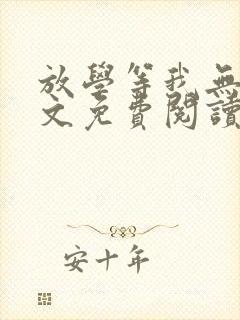 放學等我無
文免費閱讀
安十年